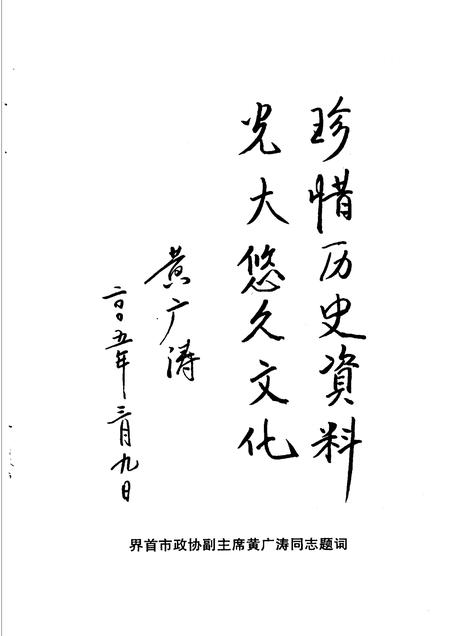 珍惜历史資料
光大悠久文化
黄广涛
二〇〇五年三月九日
界首市政协副主席黄广涛同志题词